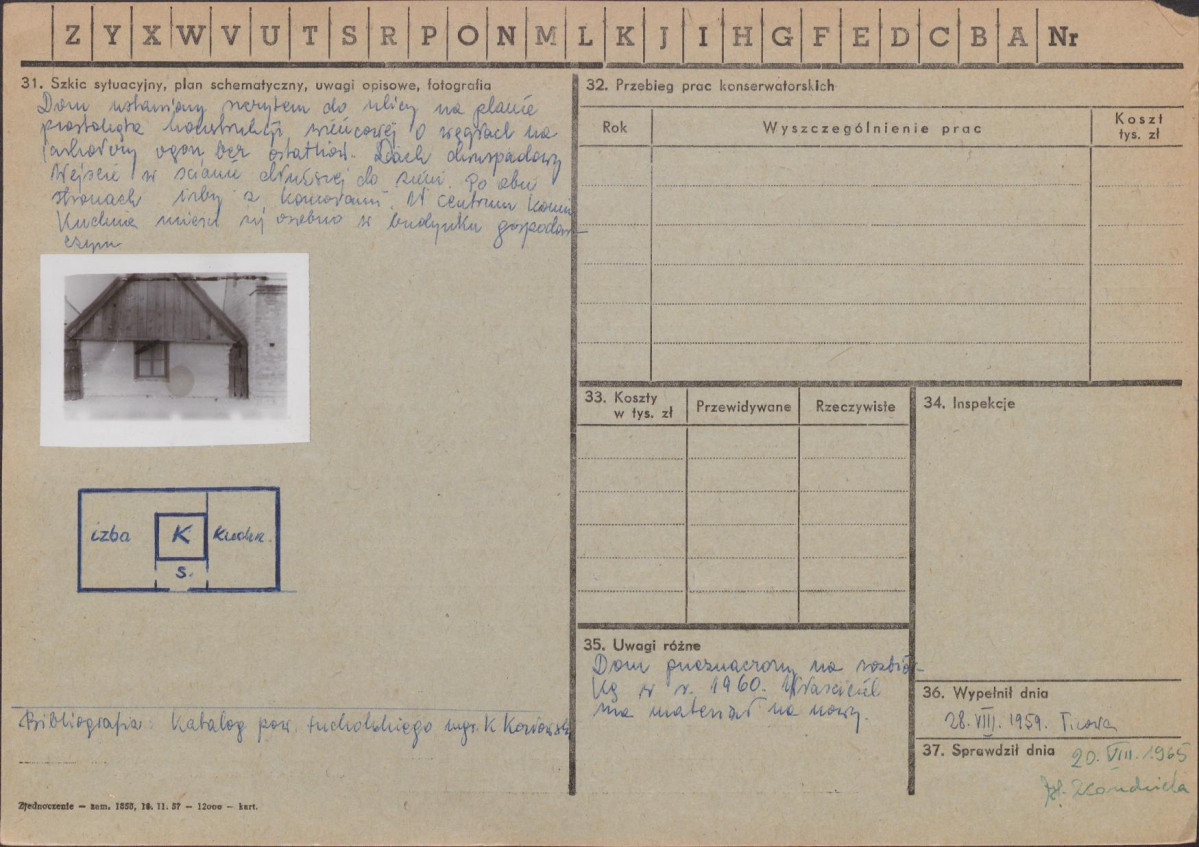 Z Y X W V U T S R P O N M L K J I H G F E D C B A Nr
31. Szkic sytuacyjny, plan schematyczny, uwagi opisowe, fotografia
Dom ustawiony szczytem do ulicy na planie
prostokąta konstrukcji wieńcowej o węgłach na
jaskółczy ogon bez ostatków. Dach dwuspadowy
Wejście w ścianie dłuższej do sieni. Po obu
stronach izby z komorami. W centrum komin
Kuchnia mieści się osobno w budynku gospodar-
czym
izba K Kuchn.
s.
Bibliografia: Katalog pow. tucholskiego mgr. K
Zjednoczenie — zam. 1853, 16. 11. 57 — 12000 — kart.
32. Przebieg prac konserwatorskich
Rok Wyszczególnienie prac Koszt tys. zł
33. Koszty w tys. zł Przewidywane Rzeczywiste
34. Inspekcje
35. Uwagi różne
Dom przeznaczony na rozbiór-
kę w r. 1960. Właściciel
ma materiał na nowy.
36. Wypełnił dnia
28. VIII. 1959.
37. Sprawdził dnia 20. VIII. 1965